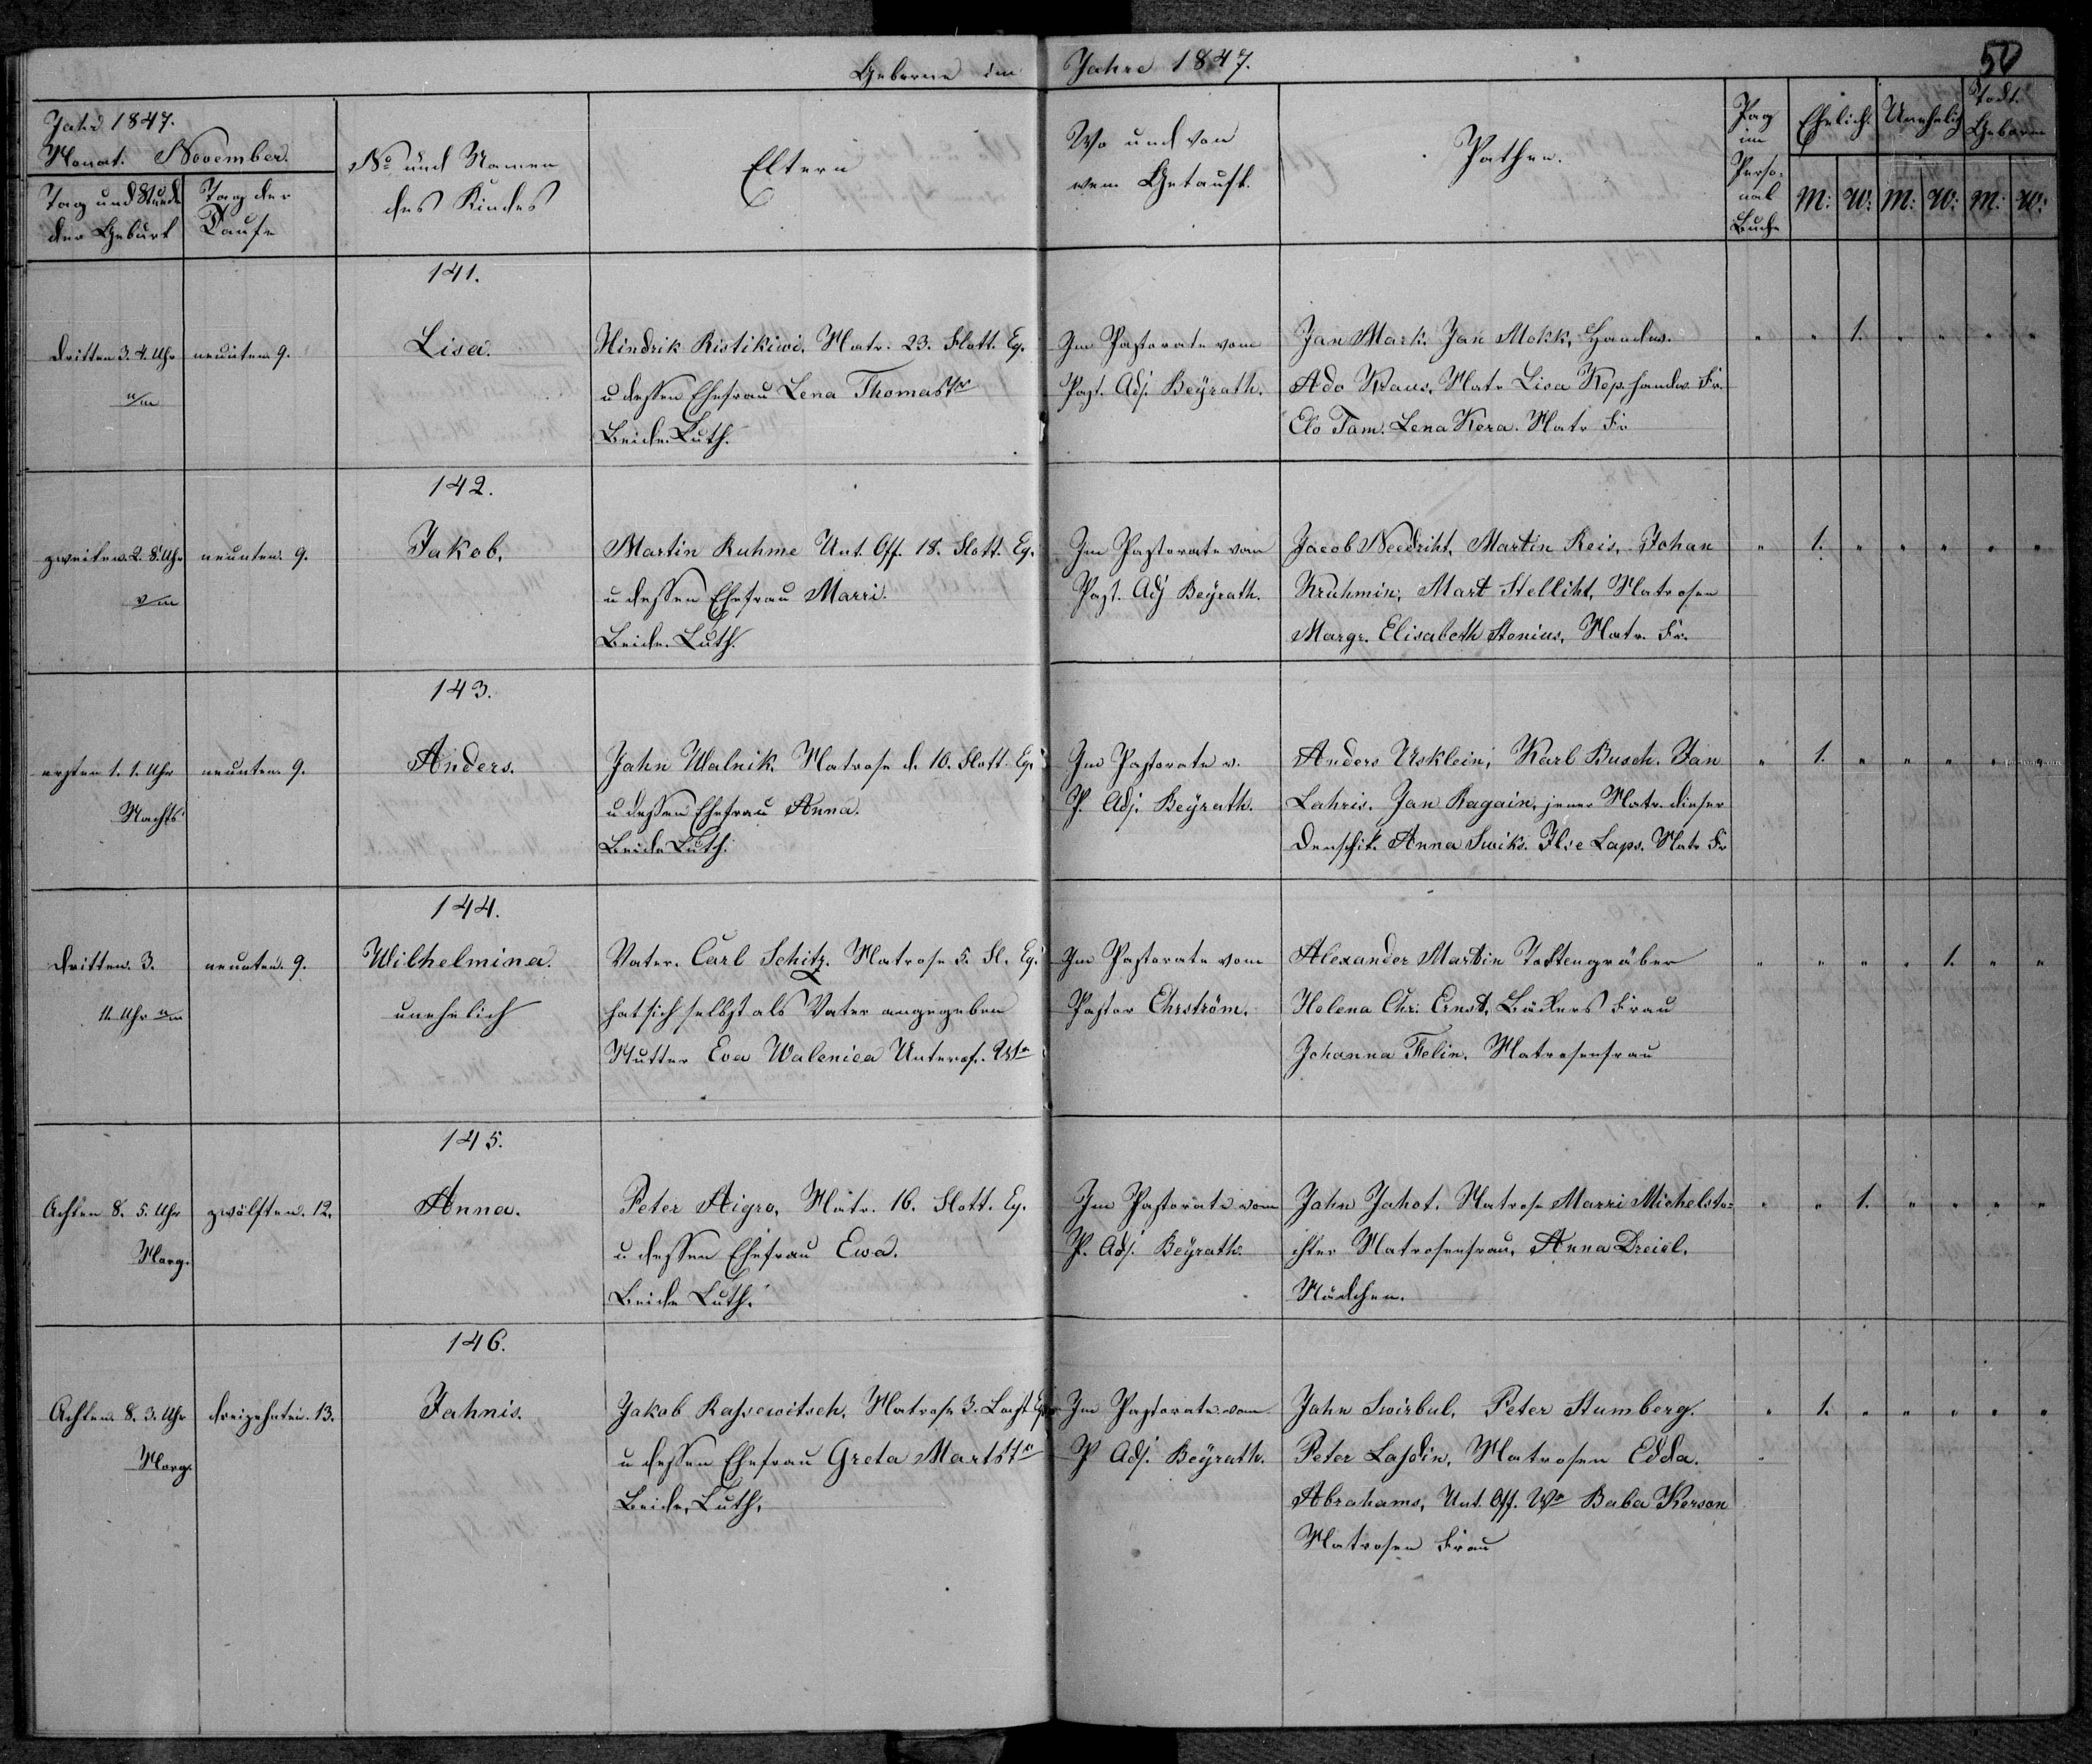 Geborene im Jahre 1847.
50
Jahr 1847.
Monat. November.
Tag und Stunde der Geburt
Tag der Taufe
No und Namen des Kindes
Eltern
Wo und von wem Getauft.
Pathen.
Pag im Perso-nal Buche
Ehelich.
Unehelig
Todt. Geboren
M: W: M: W: M: W:
141.
dritten 3. 4. Uhr neunten 9. Lisa. Hindrik Ristikiwi, Matr. 23. Flott. Eq. Im Pastorate vom Jan Mark. Jan Mokk, Handw. " " 1. " " " "
n/m u dessen Ehefrau Lena Thomastr Past. Adj. Beÿrath. Ado Kraus, Matr Lisa Kop. handw. Fr.
Beide Luth. Elo Tam. Lena Kera. Matr Fr
142.
zweiten. 2. 8. Uhr neunten. 9. Jakob. Martin Kuhme Unt. Off. 18. Flott. Eq. Im Pastorate vom Jacob Needriht, Martin Reis, Johan " 1. " " " " "
v/m u dessen Ehefrau Marri. Past. Adj Beÿrath. Kruhmin, Mart Stelliht, Matrosen
Beide Luth. Margr. Elisabeth Stenius, Matr. Fr.
143.
ersten 1. 1. Uhr neunten. 9. Anders. Jahn Walnik, Matrose d. 10. Flott Eq. Im Pastorate v. Anders Usklein, Karl Busch. Jan " 1. " " " " "
Nachts u dessen Ehefrau Anna. P. Adj. Beÿrath. Lahris. Jan Ragain, jener Matr. dieser
Beide Luth. Denschik. Anna Swiks. Ilse Laps. Matr Fr
144.
dritten. 3. neunten. 9. Wilhelmina. Vater. Carl Schitz. Matrose 5. Fl. Eq. Im Pastorate vom Alexander Martin Todtengräber " " " " 1. " "
11. Uhr n/m unehelich hat sich selbst als Vater angegeben Pastor Ehrström. Helena Chr. Ernst, Bäckers Frau
Mutter Eva Walenica Unterof. Wtr Johanna Felin. Matrosenfrau
145.
Achten 8. 5. Uhr zwölften. 12. Anna. Peter Aigro, Matr. 16. Flott. Eq. Im Pastorate vom Jahn Jahot. Matrose Marri Michelsto- " " 1. " " " "
Morg. u dessen Ehefrau Ewa. P. Adj. Beÿrath. chter Matrosenfrau, Anna Dreiel,
Beide Luth. Mädchen.
146.
Achten. 8. 3. Uhr dreizehnten. 13. Jahnis. Jakob Kassewitsch, Matrose 3. Last Eq. Im Pastorate vom Jahn Swirbul, Peter Stumberg. " 1. " " " " "
Morg. u dessen Ehefrau Greta Martstr P Adj. Beÿrath. Peter Lasdin, Matrosen Edda.
Beide Luth. Abrahams, Unt. Off. Wr Baba Kerson
Matrosen Frau